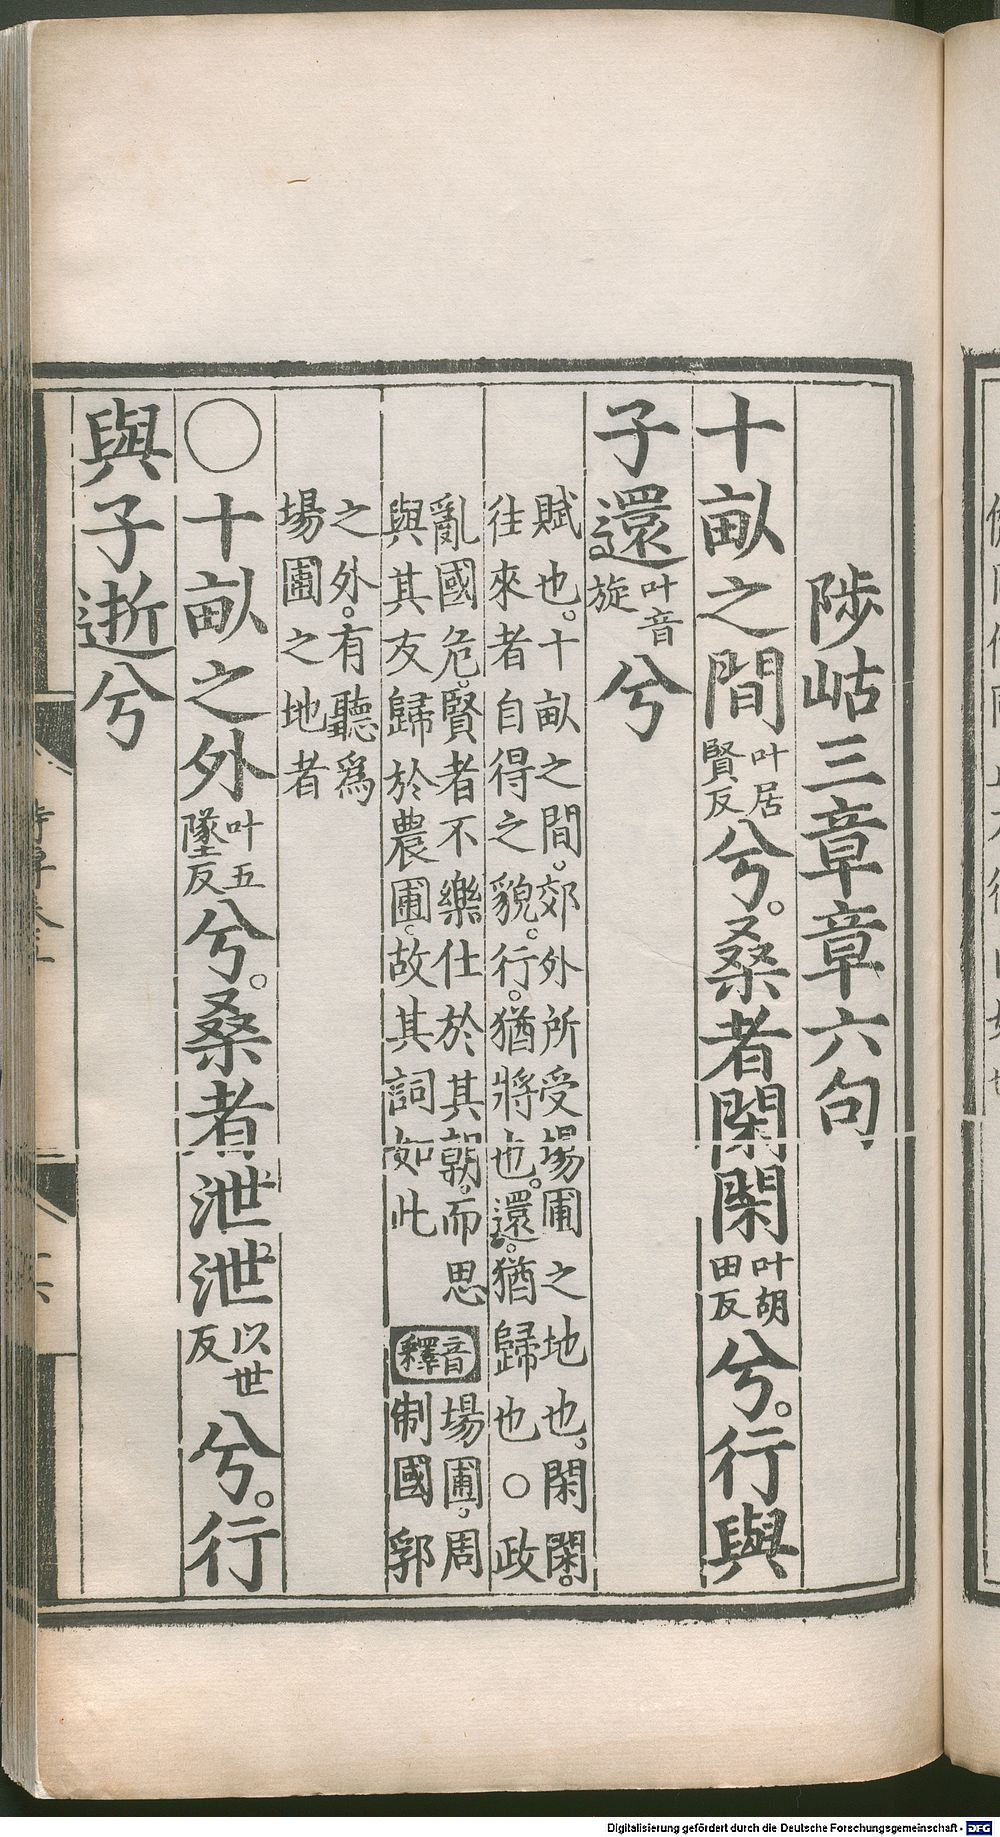 陟岵三章章六句
十畝之間叶居賢反兮。桑者閑閑叶胡田反兮。行與
子還叶音旋兮
賦也。十畝之間。郊外所受場圃之地也。閑閑。
往來者自得之貌。行。猶將也。還。猶歸也○政
亂國危。賢者不樂仕於其朝。而思
與其友歸於農圃。故其詞如此
音釋
場圃。周
制國郭
之外。有聽爲
場圃之地者
○十畝之外叶五墜反兮。桑者泄泄以世反兮。行
與子逝兮
Digitalisierung gefördert durch die Deutsche Forschungsgemeinschaft - DFG